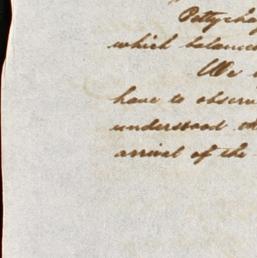 Petty cha
which balance
We
have to observ
understood th
arrival of the